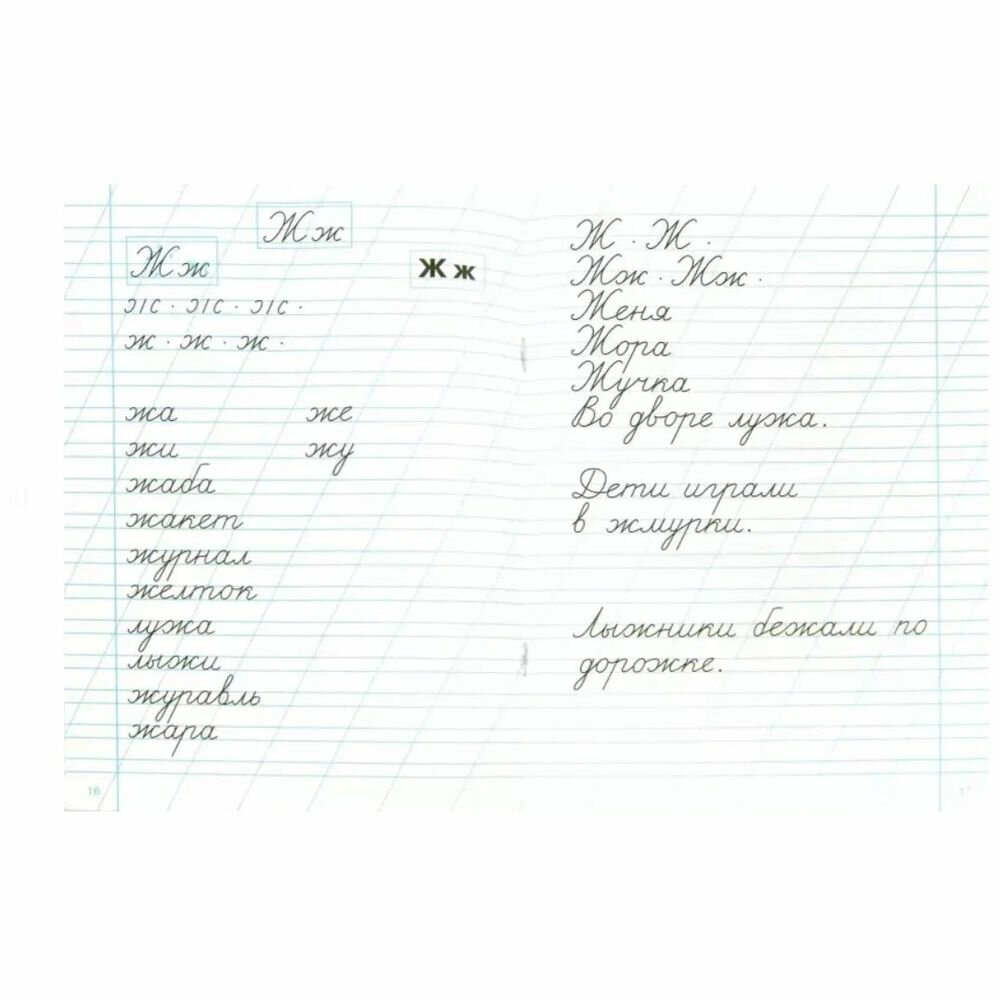 Жж
Жж Ж ж
ж · ж · ж ·
ж · ж · ж ·
жа же
жи жу
жаба
жакет
журнал
желток
лужа
лыжи
журавль
жара
16
Ж · Ж ·
Жж · Жж ·
Женя
Жора
Жучка
Во дворе лужа.
Дети играли
в жмурки.
Лыжники бежали по
дорожке.